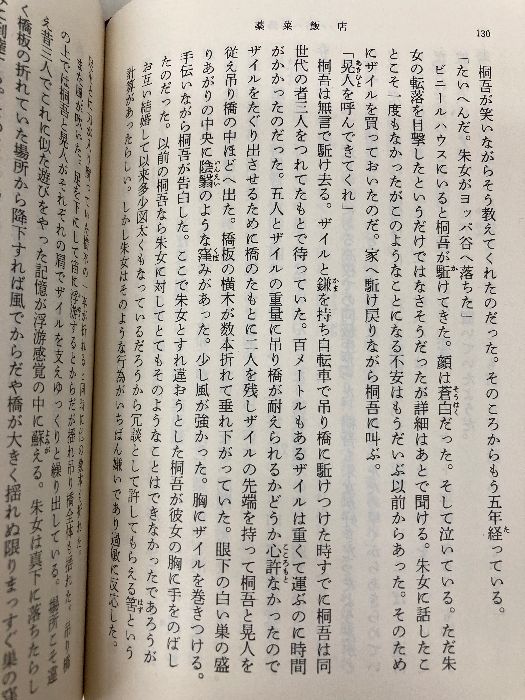 薬菜飯店
130
桐吾が笑いながらそう教えてくれたのだった。そのころからもう五年経っている。
「たいへんだ。朱女がヨッパ谷へ落ちた」
ビニールハウスにいると桐吾が駈けてきた。顔は蒼白だった。そして泣いている。ただ朱
女の転落を目撃したというだけではなさそうだったが詳細はあとで聞ける。朱女に話したこ
とこそ一度もなかったがこのようなことになる不安はもうだいぶ以前からあった。そのため
にザイルを買っておいたのだ。家へ駈け戻りながら桐吾に叫ぶ。
「晃人を呼んできてくれ」
桐吾は無言で駈け去る。ザイルと鎌を持ち自転車で吊り橋に駈けつけた時すでに桐吾は同
世代の者三人をつれてたもとで待っていた。百メートルもあるザイルは重くて運ぶのに時間
がかかったのだった。五人とザイルの重量に吊り橋が耐えられるかどうか心許なかったので
ザイルをたぐり出させるために橋のたもとに二人を残しザイルの先端を持って桐吾と晃人を
従え吊り橋の中ほどへ出た。橋板の横木が数本折れて垂れ下がっていた。眼下の白い巣の盛
りあがりの中央に陰翳のような窪みがあった。少し風が強かった。胸にザイルを巻きつける。
手伝いながら桐吾が告白した。ここで朱女とすれ違おうとした桐吾が彼女の胸に手をのばし
たのだった。以前の桐吾なら朱女に対してとてもそのようなことはできなかったであろうが
お互い結婚して以来多少図太くもなっているだろうから冗談として許してもらえる筈という
計算があったらしい。しかし朱女はそのような行為がいちばん嫌いであり過敏に反応した。
の上では桐吾と晃人がそれぞれの肩でザイルを支えゆっくりと繰り出している。場所こそ違
え昔三人でこれに似た遊びをやった記憶が浮游感覚の中に蘇える。朱女は真下に落ちたらし
く橋板の折れていた場所から降下すれば風でからだや橋が大きく揺れぬ限りまっすぐ巣の窪